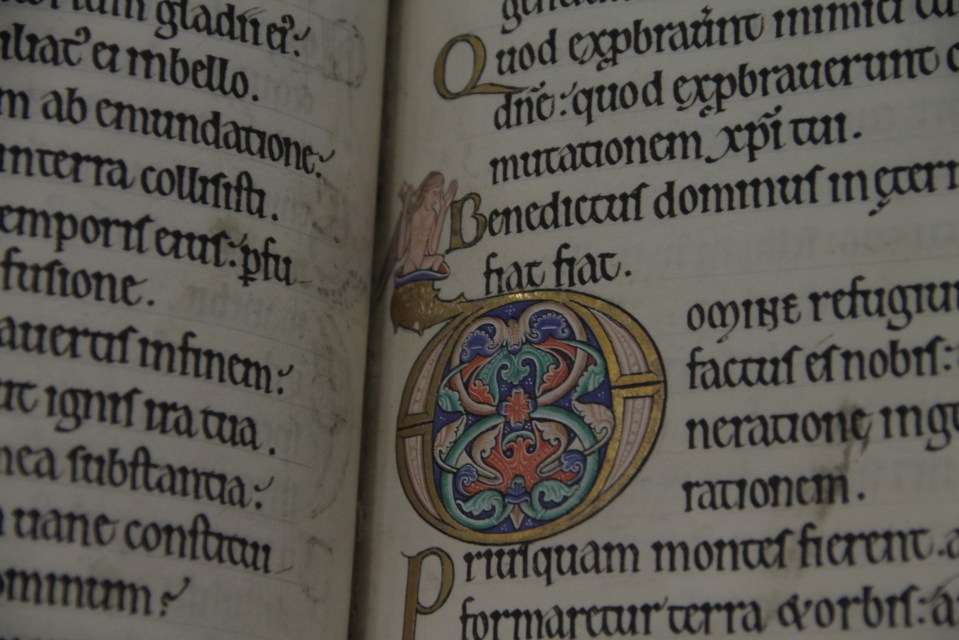 gladii ei⁹:
ei inbello.
ab emundatione:
interra collisisti.
temporis eius: ꝑfu
fusione.
auertis infinem:
ignis ira tua.
mea substantia:
uane constitui
Quod exꝓbrauer̃nt inimici
dñe: quod exꝓbrauerunt
mutationem xp̄i tui.
Benedictus dominus inętern
fiat fiat.
DOMINE refugium
factus es nobis:
neratione inge
rationem.
Priusquam montes fierent. a
formaretur terra & orbis: a